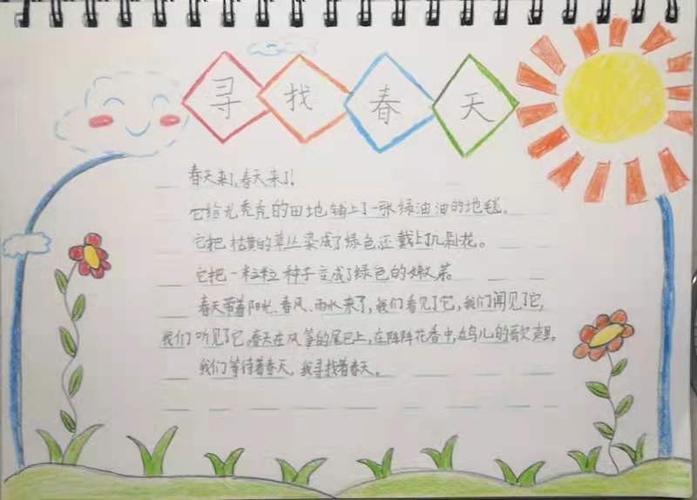 寻找春天
春天来了,春天来了!
它给光秃秃的田地铺上了一张绿油油的地毯。
它把枯黄的草丛染成了绿色,还戴上几朵花。
它把一粒粒种子变成了绿色的嫩菜。
春天带着阳光、春风、雨水来了,我们看见了它,我们闻见了它,
我们听见了它。春天在风筝的尾巴上,在阵阵花香中,在鸟儿的歌声里。
我们等待着春天,我寻找着春天。